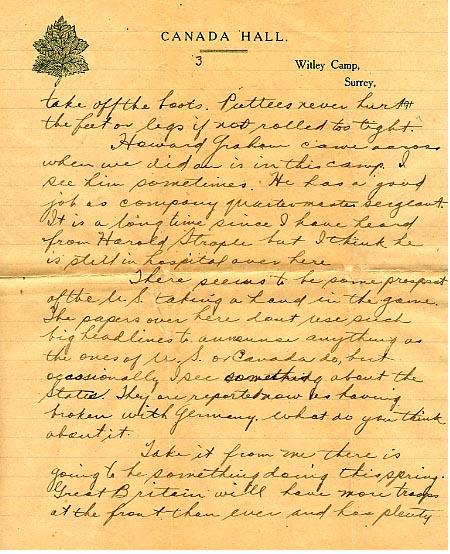 CANADA HALL.
3
Witley Camp,
Surrey,
take off the boots. Puttees never hurt
the feet or legs if not rolled too tight.
Howard Graham came across
when we did an is in this camp. I
see him sometimes. He has a good
job as company quartermaster sergeant.
It is a long time since I have heard
from Harold Strople but I think he
is still in hospital over here
There seems to be some prospect
of the U.S. taking a hand in the game.
The papers over here dont use such
big headlines to announse anything as
the ones of U.S. or Canada do, but
occassionally I see something about the
States. They are reported now as having
broken with Germany. What do you think
about it.
Take it from me there is
going to be something doing this spring.
Great Britain will have more troops
at the front then ever and has plenty